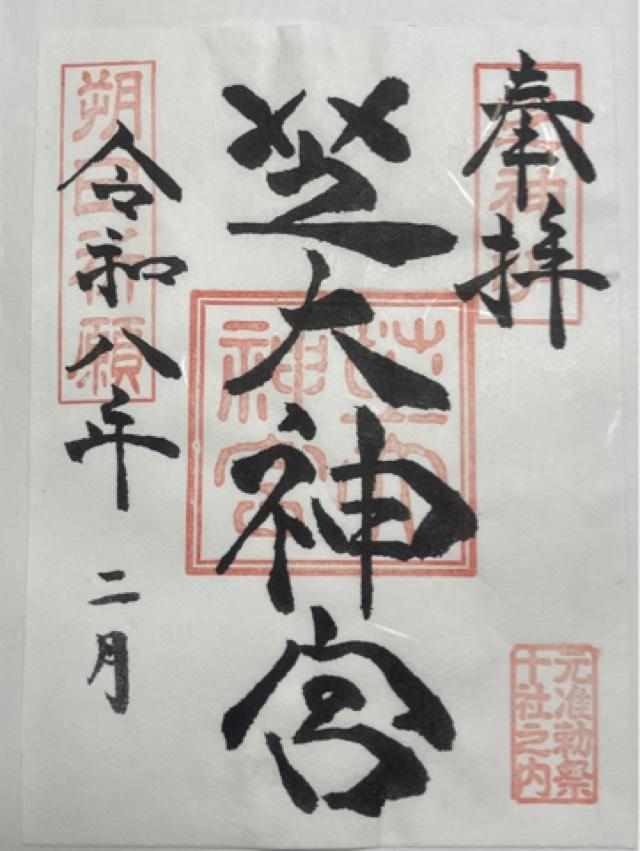 奉拝
芝大神宮
芝大神宮
朔日祈願
令和八年
二月
元准勅祭
十社之内